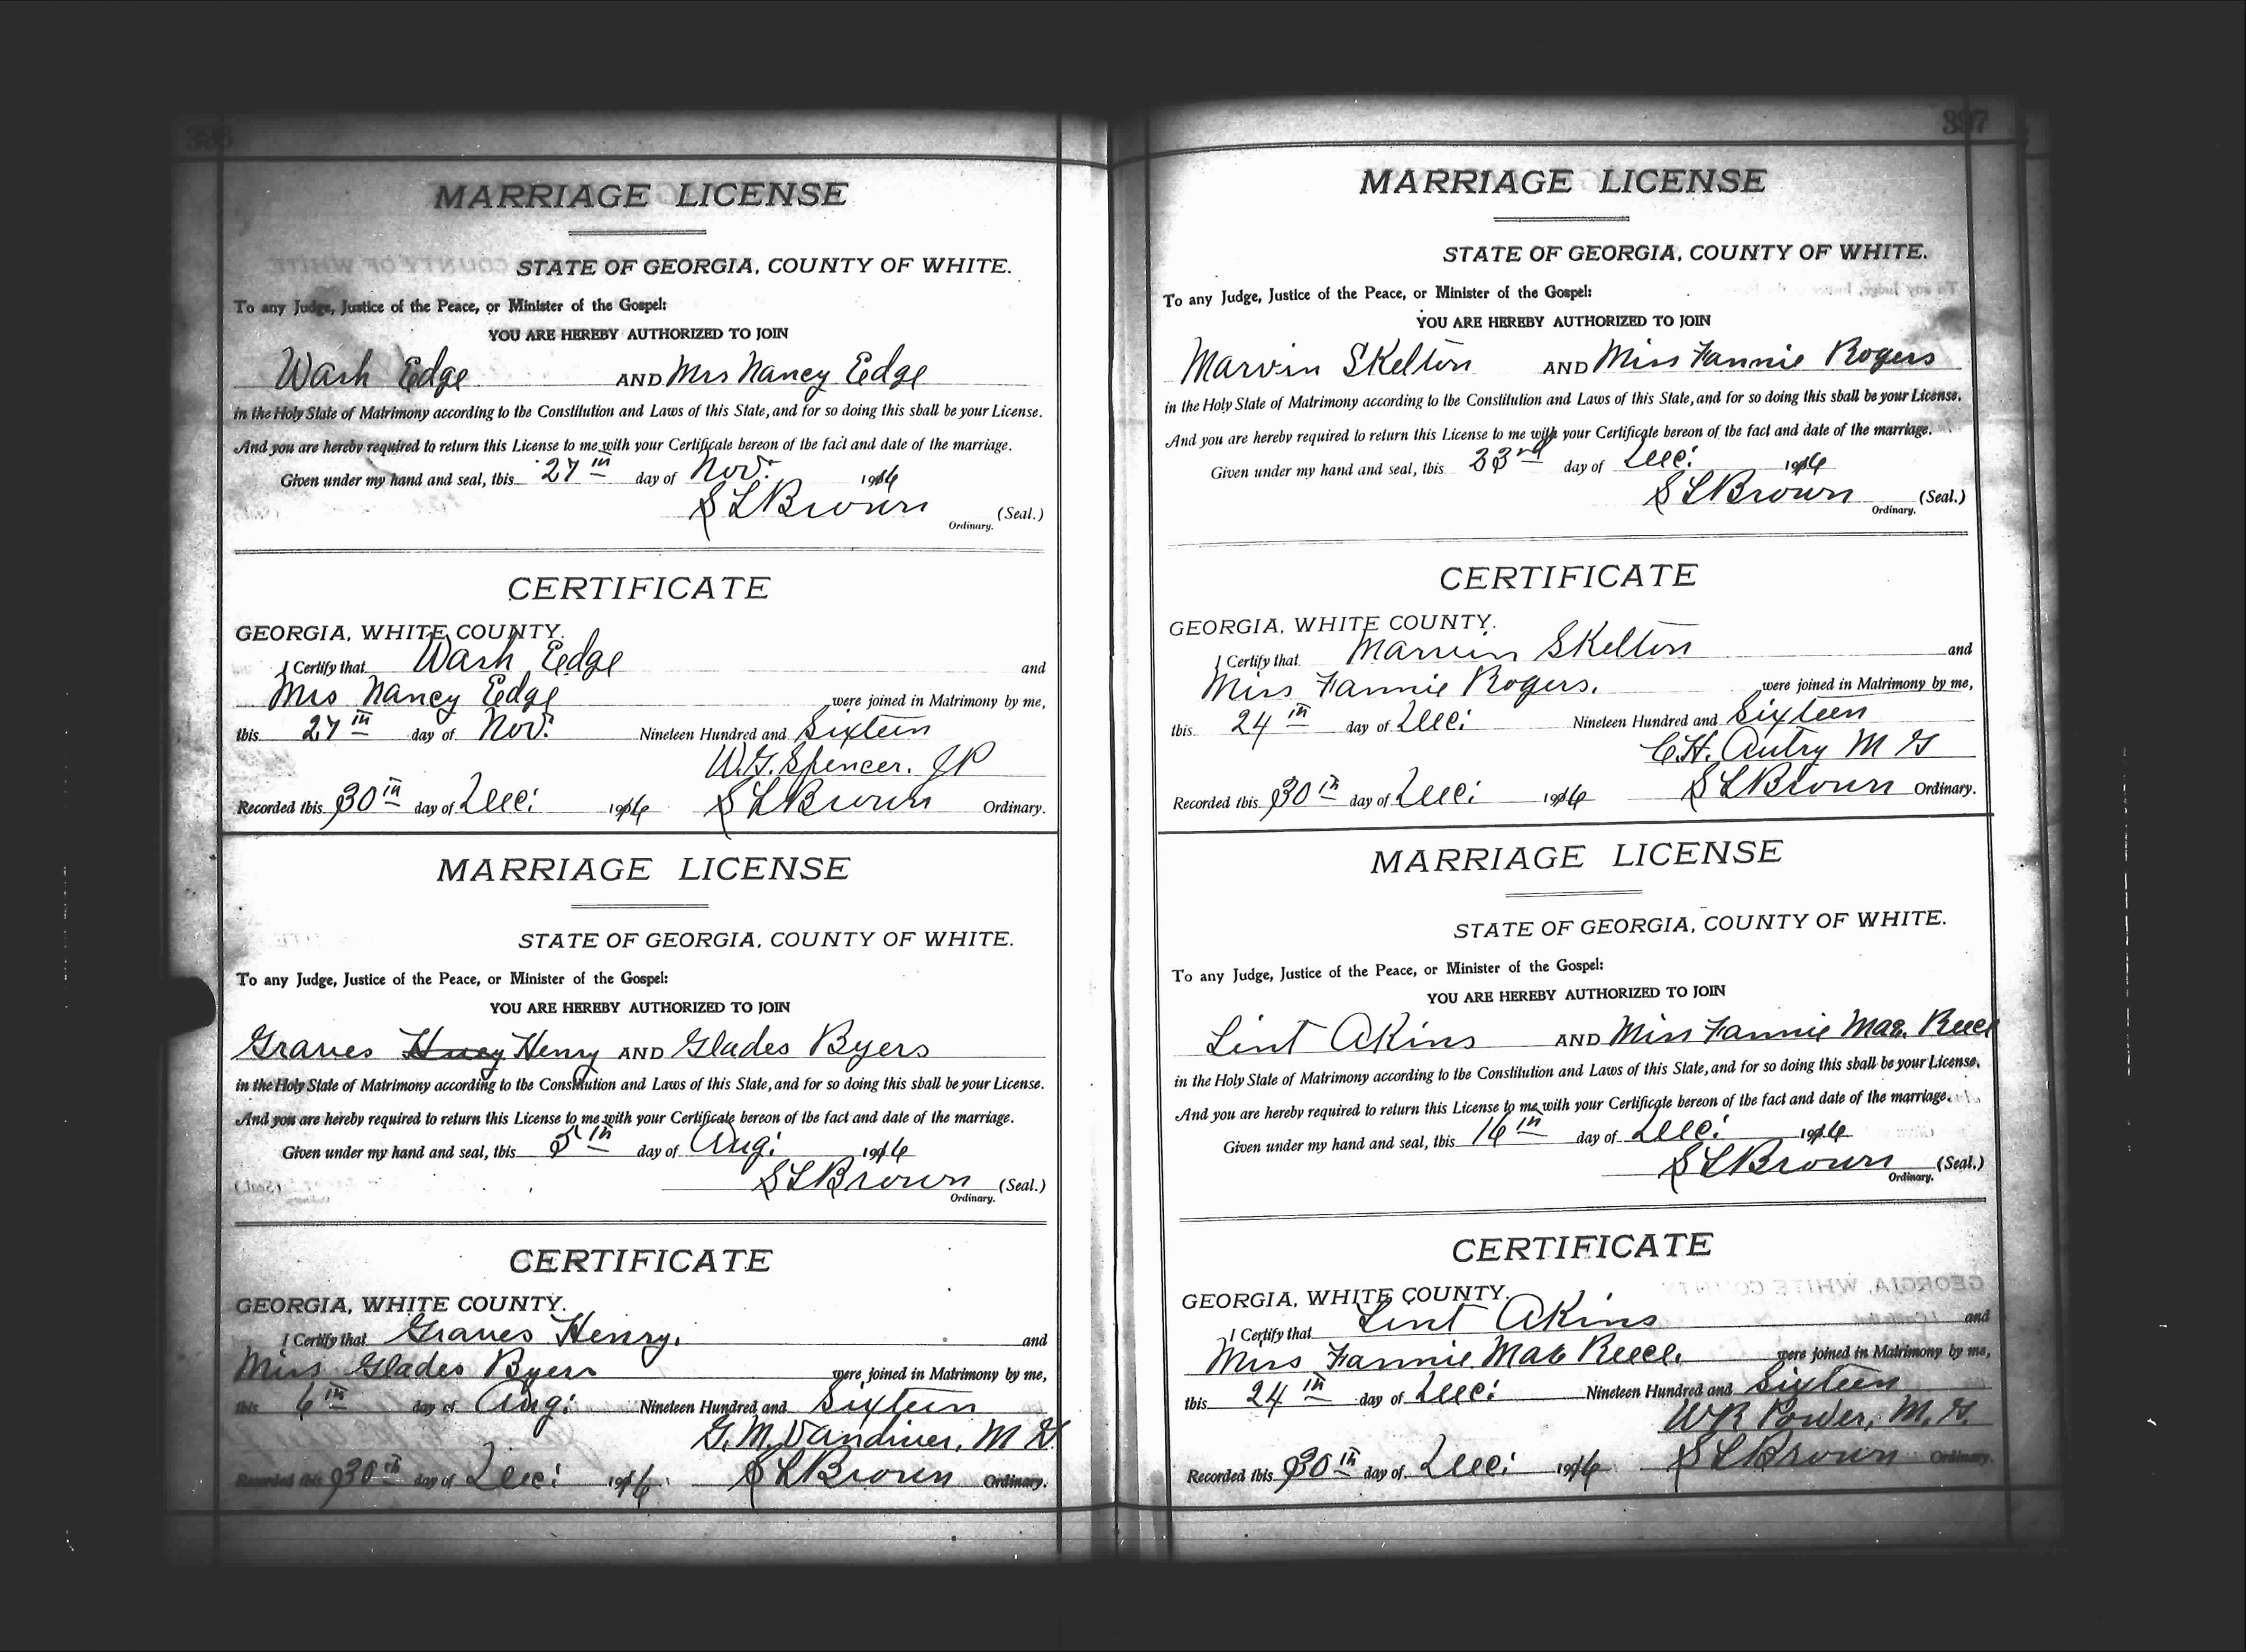 396
MARRIAGE LICENSE
STATE OF GEORGIA, COUNTY OF WHITE.
To any Judge, Justice of the Peace, or Minister of the Gospel:
YOU ARE HEREBY AUTHORIZED TO JOIN
Wash Edge AND Mrs Nancy Edge
in the Holy State of Matrimony according to the Constitution and Laws of this State, and for so doing this shall be your License.
And you are hereby required to return this License to me with your Certificate hereon of the fact and date of the marriage.
Given under my hand and seal, this 27th day of Nov. 1916
S L Brown (Seal.)
Ordinary.
CERTIFICATE
GEORGIA, WHITE COUNTY.
I Certify that Wash Edge and
Mrs Nancy Edge were joined in Matrimony by me,
this 27th day of Nov. Nineteen Hundred and Sixteen
W.G. Spencer. JP
Recorded this 30th day of Dec: 1916 S L Brown Ordinary.
MARRIAGE LICENSE
STATE OF GEORGIA, COUNTY OF WHITE.
To any Judge, Justice of the Peace, or Minister of the Gospel:
YOU ARE HEREBY AUTHORIZED TO JOIN
Graves Henry AND Glades Byers
in the Holy State of Matrimony according to the Constitution and Laws of this State, and for so doing this shall be your License.
And you are hereby required to return this License to me with your Certificate hereon of the fact and date of the marriage.
Given under my hand and seal, this 5th day of Aug: 1916
S L Brown (Seal.)
Ordinary.
CERTIFICATE
GEORGIA, WHITE COUNTY.
I Certify that Graves Henry. and
Miss Glades Byers were joined in Matrimony by me,
this 6th day of Aug: Nineteen Hundred and Sixteen
G. M. Vandiver, M G
Recorded this 30th day of Dec: 1916. S L Brown Ordinary.
397
MARRIAGE LICENSE
STATE OF GEORGIA, COUNTY OF WHITE.
To any Judge, Justice of the Peace, or Minister of the Gospel:
YOU ARE HEREBY AUTHORIZED TO JOIN
Marvin Skelton AND Miss Fannie Rogers
in the Holy State of Matrimony according to the Constitution and Laws of this State, and for so doing this shall be your License.
And you are hereby required to return this License to me with your Certificate hereon of the fact and date of the marriage.
Given under my hand and seal, this 23rd day of Dec: 1916
S L Brown (Seal.)
Ordinary.
CERTIFICATE
GEORGIA, WHITE COUNTY.
I Certify that Marvin Skelton and
Miss Fannie Rogers. were joined in Matrimony by me,
this 24th day of Dec: Nineteen Hundred and Sixteen
C.H. Autry M G
Recorded this 30th day of Dec: 1916 S L Brown Ordinary.
MARRIAGE LICENSE
STATE OF GEORGIA, COUNTY OF WHITE.
To any Judge, Justice of the Peace, or Minister of the Gospel:
YOU ARE HEREBY AUTHORIZED TO JOIN
Lint Akins AND Miss Fannie Mae Reece
in the Holy State of Matrimony according to the Constitution and Laws of this State, and for so doing this shall be your License.
And you are hereby required to return this License to me with your Certificate hereon of the fact and date of the marriage.
Given under my hand and seal, this 16th day of Dec: 1916
S L Brown (Seal.)
Ordinary.
CERTIFICATE
GEORGIA, WHITE COUNTY.
I Certify that Lint Akins and
Miss Fannie Mae Reece. were joined in Matrimony by me,
this 24th day of Dec: Nineteen Hundred and Sixteen
W R Power, M. G.
Recorded this 30th day of Dec: 1916 S L Brown Ordinary.